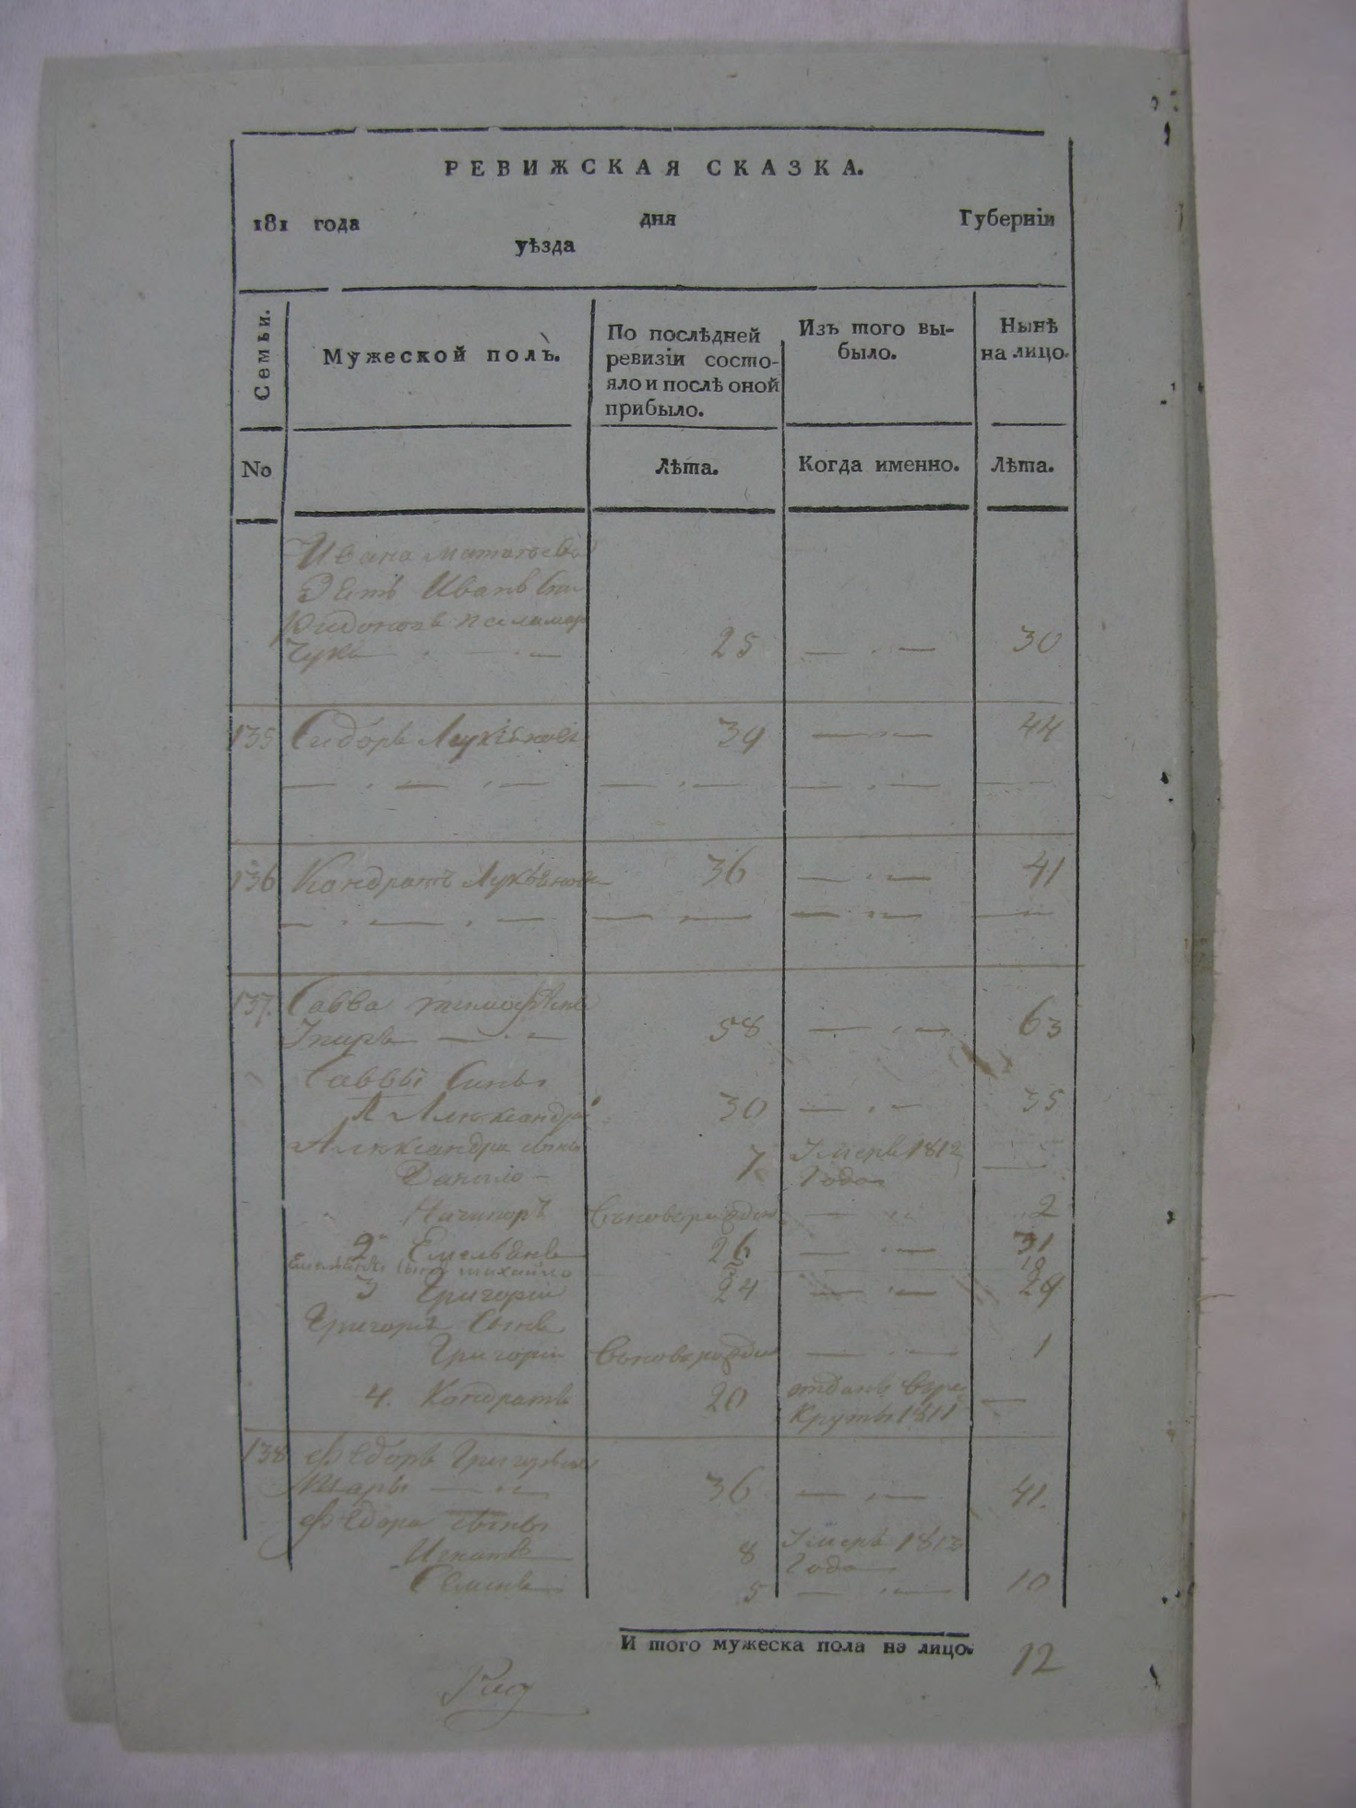 РЕВИЖСКАЯ СКАЗКА.
181 года дня Губерніи
уѣзда
Семьи.
Мужеской полъ.
По послѣдней
ревизіи состо-
яло и послѣ оной
прибыло.
Изъ того вы-
было.
Нынѣ
на лицо.
No
Лѣта.
Когда именно.
Лѣта.
Ивана
Зять Иванъ
25 30
135 Сидоръ Лукьяновъ 39 44
136 Кондратъ Лукьяновъ 36 41
137. Савва
58 63
Саввы Сыны
1 Александръ 30 35
Александра сыны
Данило 7 Умеръ 1812
Года
Ничипоръ вновьрожден 2
2 Емельянъ 26 31
сынъ Михайло
3 Григорій 24 29
Григорія Сынъ
Григорій вновьрожден 1
4. Кондратъ 20 отданъ врек
круты 1811
138 Федоръ Григорьевъ
36 41.
Федора сыны
Игнатъ 8 Умеръ 1812
Года
Семенъ 5 10
И того мужеска пола на лицо. 12